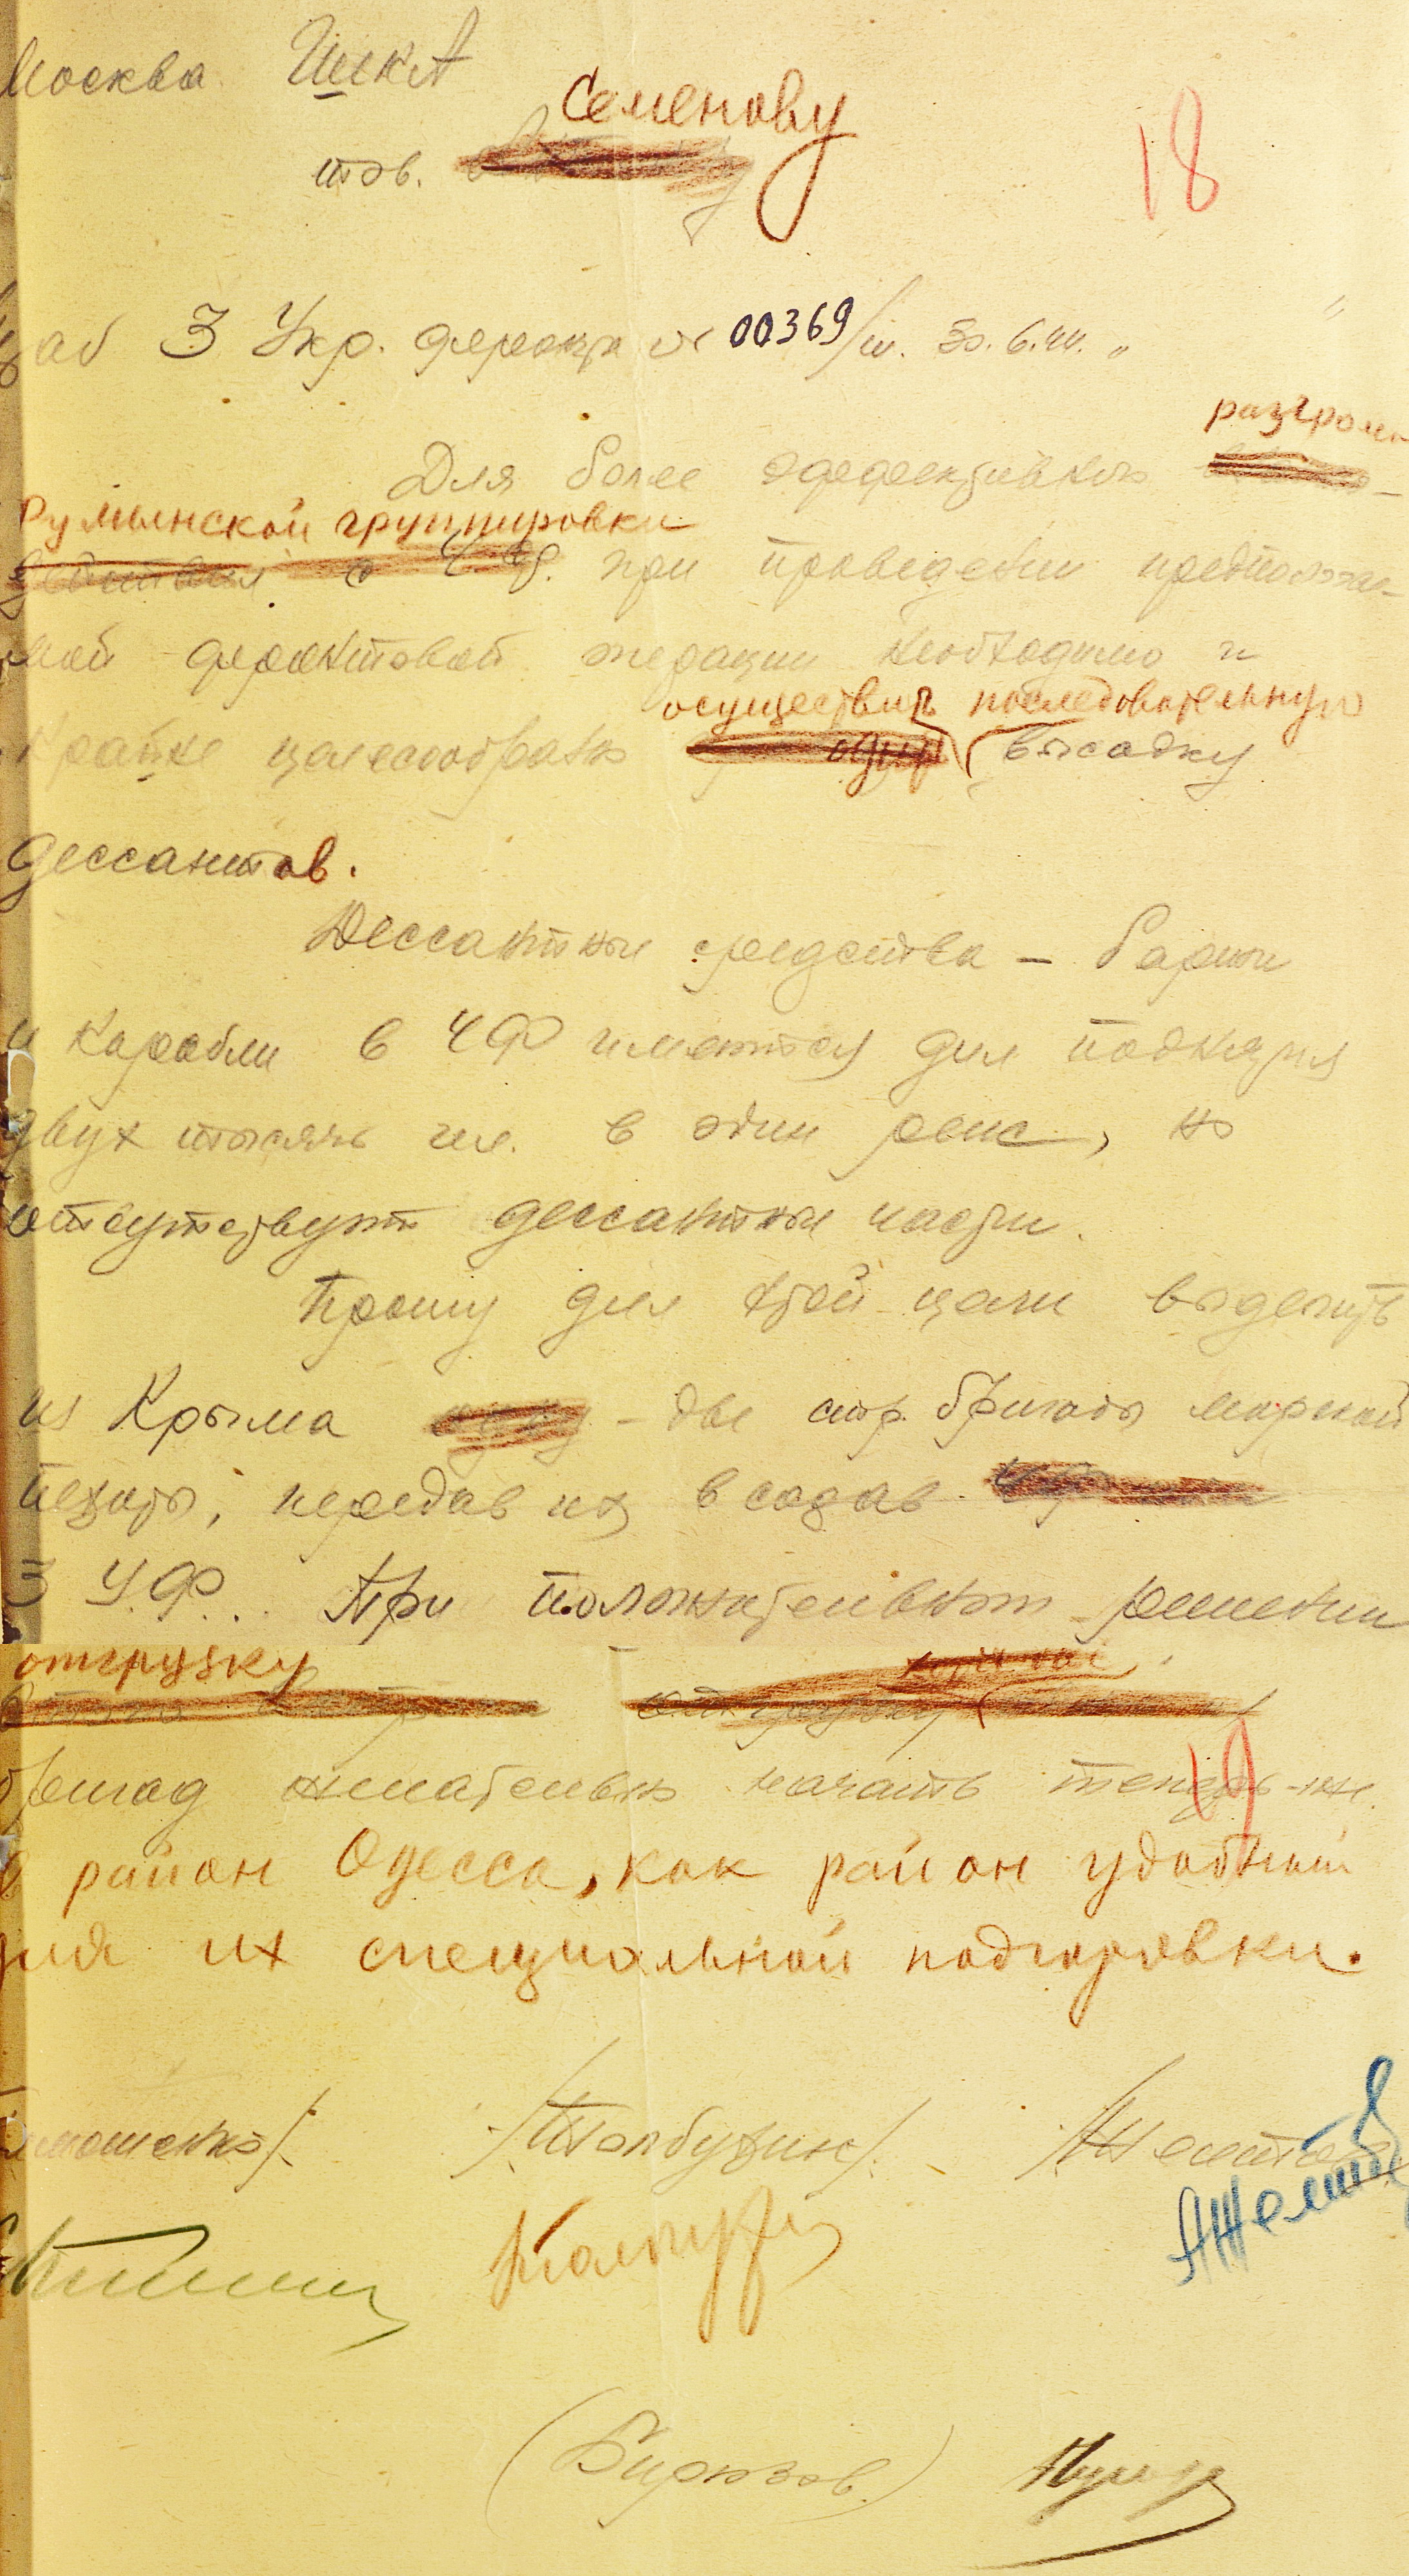 Москва
Семенову
тов.
18
3 Укр. фронта 00369/ш. 30.6.44. "
разгрома
Для более эффективного
румынской группировки
при проведении предполагае-
мой фронтовой операции необходимо и
осуществить последовательную
крайне целесообразно высадку
дессантов.
Дессантные средства – баржи
и корабли в ЧФ имеются для поднятия
двух тысяч чел. в один рейс, но
отсутствуют дессантные части.
Прошу для этой цели выделить
из Крыма – две стр. бригады морской
пехоты, передав их в состав
3 У.Ф. При положительном решении
отгрузку
19
бригад желательно начать теперь-же
в район Одесса, как район удобный
для их специальной подготовки.
/Толбухин/. /Желтов
АЖелтов
(Бирюзов)